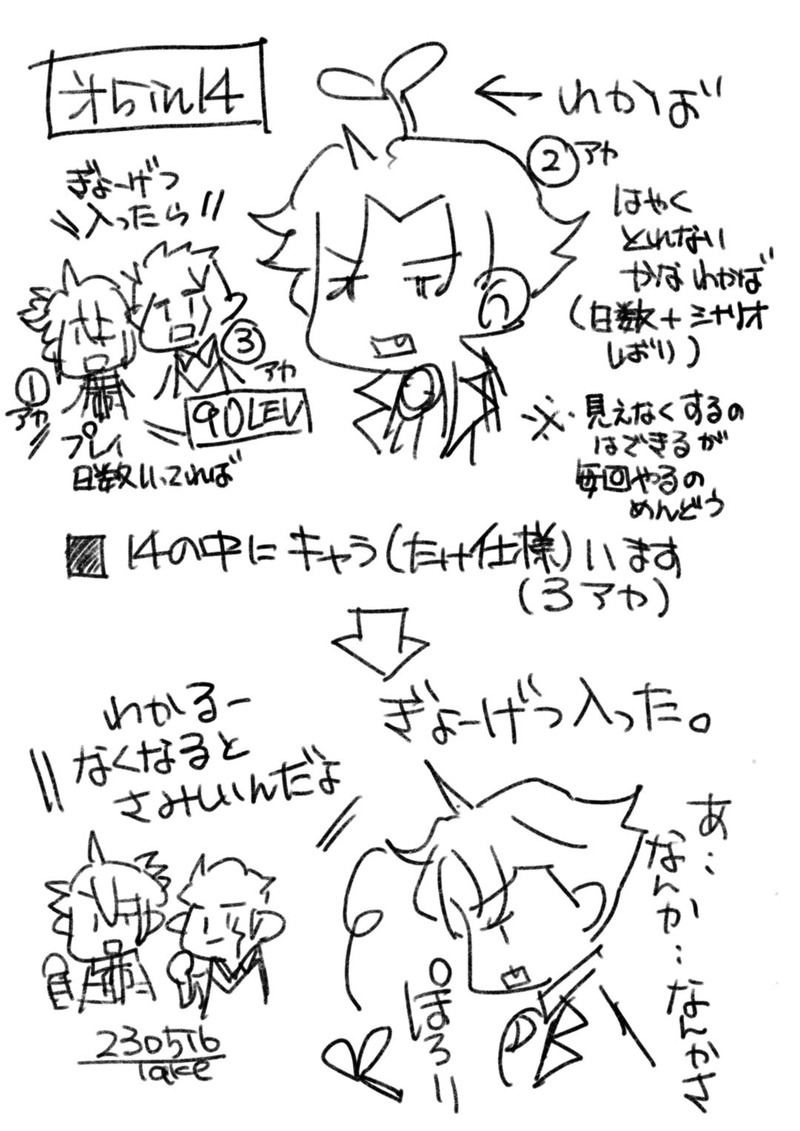 才らin14
← わかば
②アカ
はやく
とれない
かな わかば
(日数+シナリオ
しばり)
ぎょーげつ
入ったら
①
アカ
③
アカ
90LEV
プレイ
日数いってれば
※見えなくするの
はできるが
毎回やるの
めんどう
■ 14の中にキャラ(たけ仕様)います
(3アカ)
ぎょーげつ入った。
わかるー
なくなると
さみしいんだよ
あ…
なんか…
なんかさ
ぽろり
230516
take